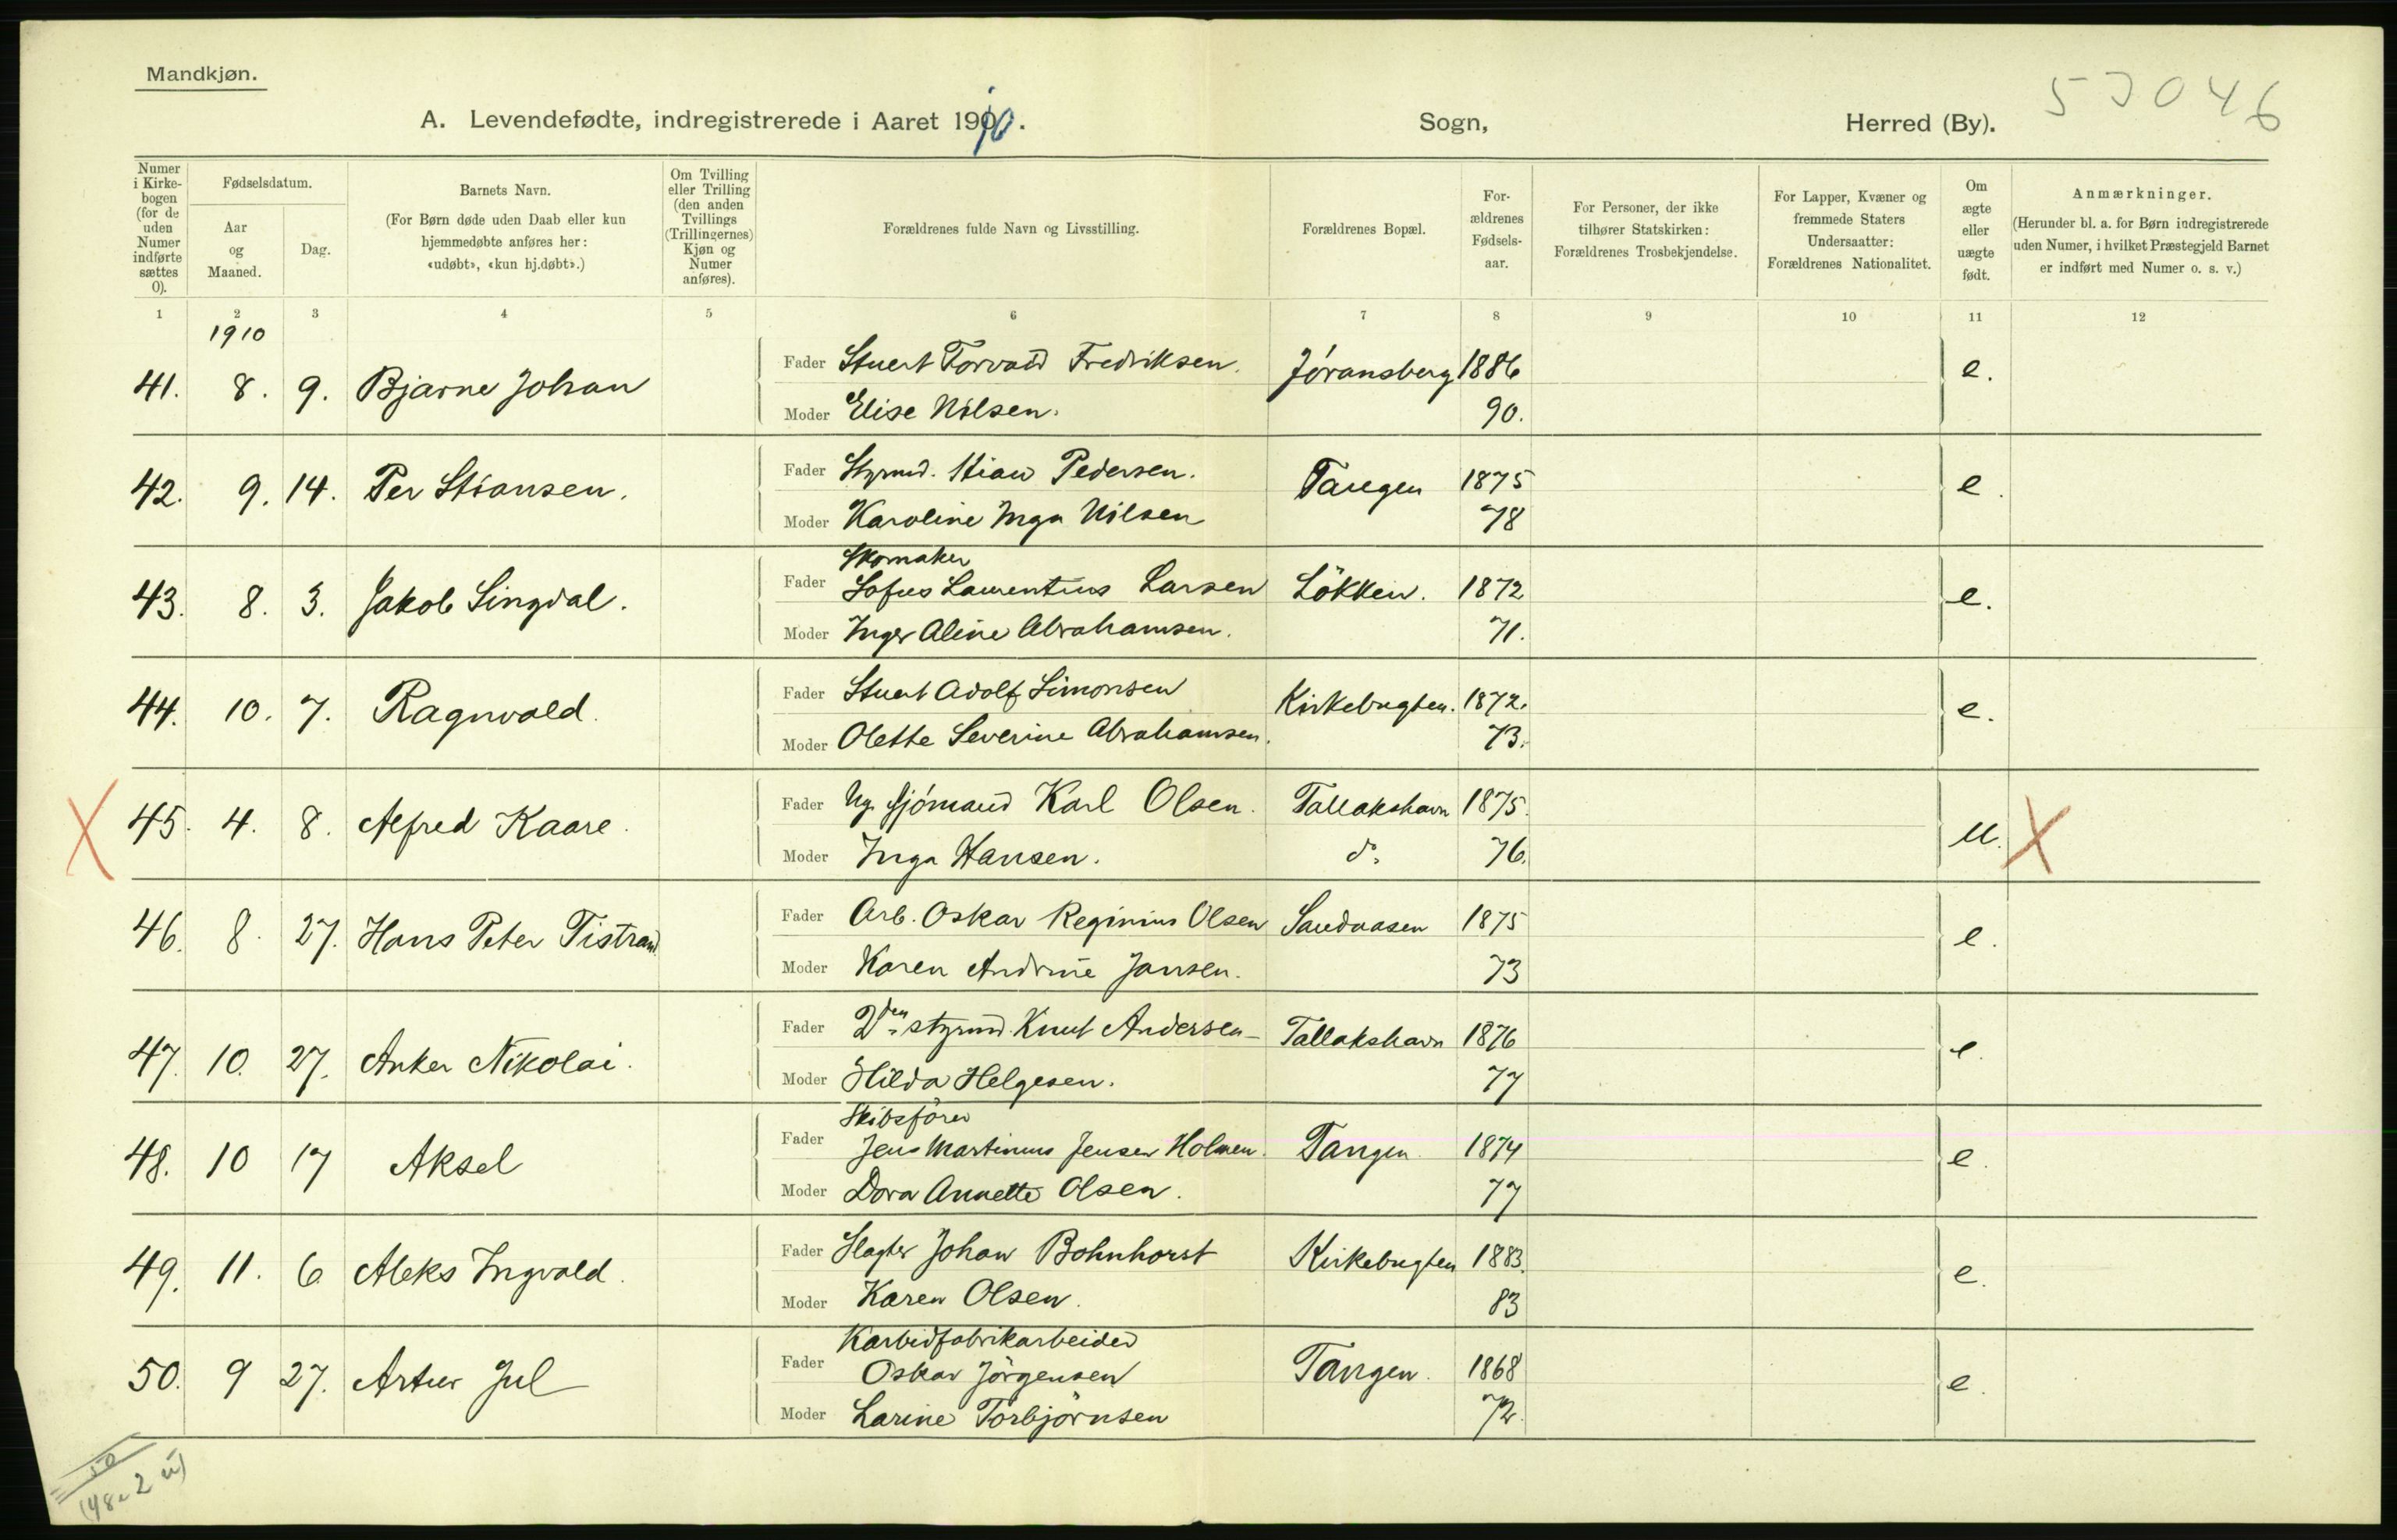 Mandkjøn.
53046
A. Levendefødte, indregistrerede i Aaret 1910. Sogn, Herred (By).
Numer i Kirkebogen (for de uden Numer indførte sættes 0).
Fødselsdatum.
Aar og Maaned.
Dag.
Barnets Navn.
(For Børn døde uden Daab eller kun hjemmedøbte anføres her: «udøbt», «kun hj.døbt».)
Om Tvilling eller Trilling (den anden Tvillings (Trillingernes) Kjøn og Numer anføres).
Forældrenes fulde Navn og Livsstilling.
Forældrenes Bopæl.
Forældrenes Fødselsaar.
For Personer, der ikke tilhører Statskirken: Forældrenes Trosbekjendelse.
For Lapper, Kvæner og fremmede Staters Undersaatter: Forældrenes Nationalitet.
Om ægte eller uægte født.
Anmærkninger.
(Herunder bl. a. for Børn indregistrerede uden Numer, i hvilket Præstegjeld Barnet er indført med Numer o. s. v.)
1 2 3 4 5 6 7 8 9 10 11 12
1910
41. 8. 9. Bjarne Johan Fader Stuert Torvald Fredriksen. Jöransberg 1886 e.
Moder Elise Nilsen. 90.
42. 9. 14. Per Stiansen. Fader Styrmd. Stian Pedersen. Tangen 1875 e.
Moder Karoline Inga Nilsen 78
Skomaker
43. 8. 3. Jakob Lingdal. Fader Sofus Laurentius Larsen Lökken. 1872 e.
Moder Inger Aline Abrahamsen. 71.
44. 10. 7. Ragnvald. Fader Stuert Adolf Simonsen Kirkebugten. 1872. e.
Moder Olette Severine Abrahamsen. 73.
X 45. 4. 8. Alfred Kaare. Fader Ug. Sjömand Karl Olsen. Tallakshavn 1875. u. X
Moder Inga Hansen. do 76.
46. 8. 27. Hans Peter Tistrand. Fader Arb. Oskar Reginius Olsen Sandaasen 1875 e.
Moder Karen Andrine Jansen. 73
47. 10. 27. Anker Nikolai. Fader 2den styrmd. Knut Andersen Tallakshavn 1876 e.
Moder Hilda Helgesen. 77
Skibsförer
48. 10 17 Aksel Fader Jens Martinius Jensen Holmen. Tangen 1874 e.
Moder Dora Annette Olsen. 77
49. 11. 6 Aleks Ingvald. Fader Slagter Johan Bohnhorst Kirkebugten 1883. e.
Moder Karen Olsen. 83
Karbidfabrikarbeider
50. 9 27. Artur Jul Fader Oskar Jörgensen Tangen. 1868 e.
Moder Larine Torbjörnsen 72.
50
(48 e 2 u)